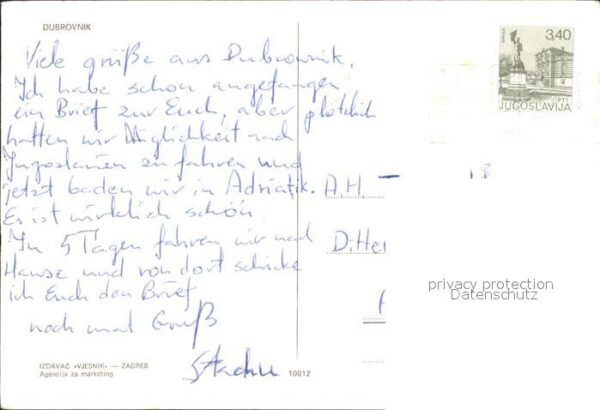 DUBROVNIK
Viele grüße aus Dubrovnik.
Ich habe schon angefangen
ein Brief zur Euch, aber plötzlich
hatten wir Möglichkeit nad
Jugoslavien zu fahren und
jetzt baden wir in Adriatik.
Es ist wirklich schön.
In 5 Tagen fahren wir nad
Hause und von dort schicke
ich Euch den Brief
noch mal Gruß
IZDAVAČ «VJESNIK» — ZAGREB
Agencija za marketing
10012
3,40
JUGOSLAVIJA
A.H.
D.Her
privacy protection
Datenschutz